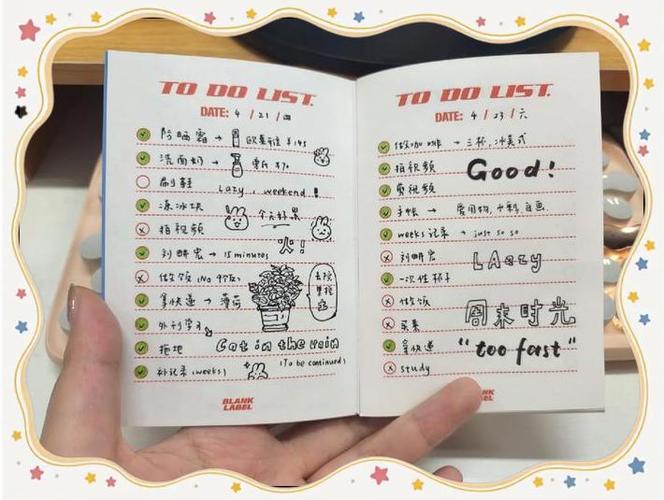 TO DO LIST.
DATE: 4 / 21 / 四
防晒霜 → 欧莱雅 ¥145
洗面奶 →
刷鞋
Lazy, weekend!
冻冰块
个大好累
拍视频
火!
刘畊宏 → 15 minutes
做饭 (No
拿快递 → 薄荷
去除
外刊学习
拖地
Cat in the rain
补记录 (weeks)
(To be continued)
BLANK
LABEL
TO DO LIST.
DATE: 4 / 23 / 六
做咖啡 → 三杯,冰美式
拍视频
Good!
剪视频
手帐 → 爱用物,
weeks记录 → just so so
刘畊宏
LAzzy
一次性杯子
做饭
周末时光
买菜
拿快递
"too fast"
study
BLANK
LABEL